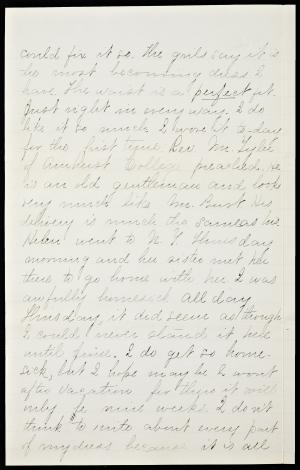 could fix it so. The girls say it is
the most becoming dress I
have. The waist is a perfect fit.
Just right in every way. I do
like it so much. I wore it to-day
for the first time. Rev. Mr. Tyler
of Amherst College preached. He
is an old gentleman and looks
very much like Mr. Burt. His
delivery is much the same as his
Helen went to N. Y. Thursday
morning and her sister met her
there to go home with her. I was
awfully homesick all day
Thursday, it did seem as though
I could never stand it here
until June. I do get so home-
sick, but I hope may be I wont
after vacation for there it will
only be nine weeks. I don't
think to write about every part
of my dress because it is all